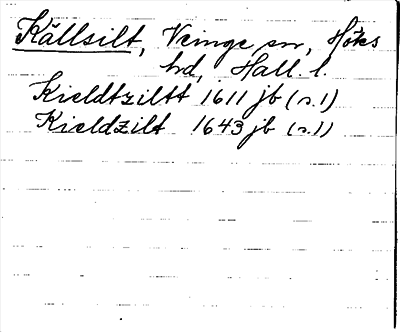 Källsilt, Veinge sn, Höks
hd, Hall. l.
Kieldtziltt 1611 jb (s.1)
Kieldzilt 1643 jb (s.1)